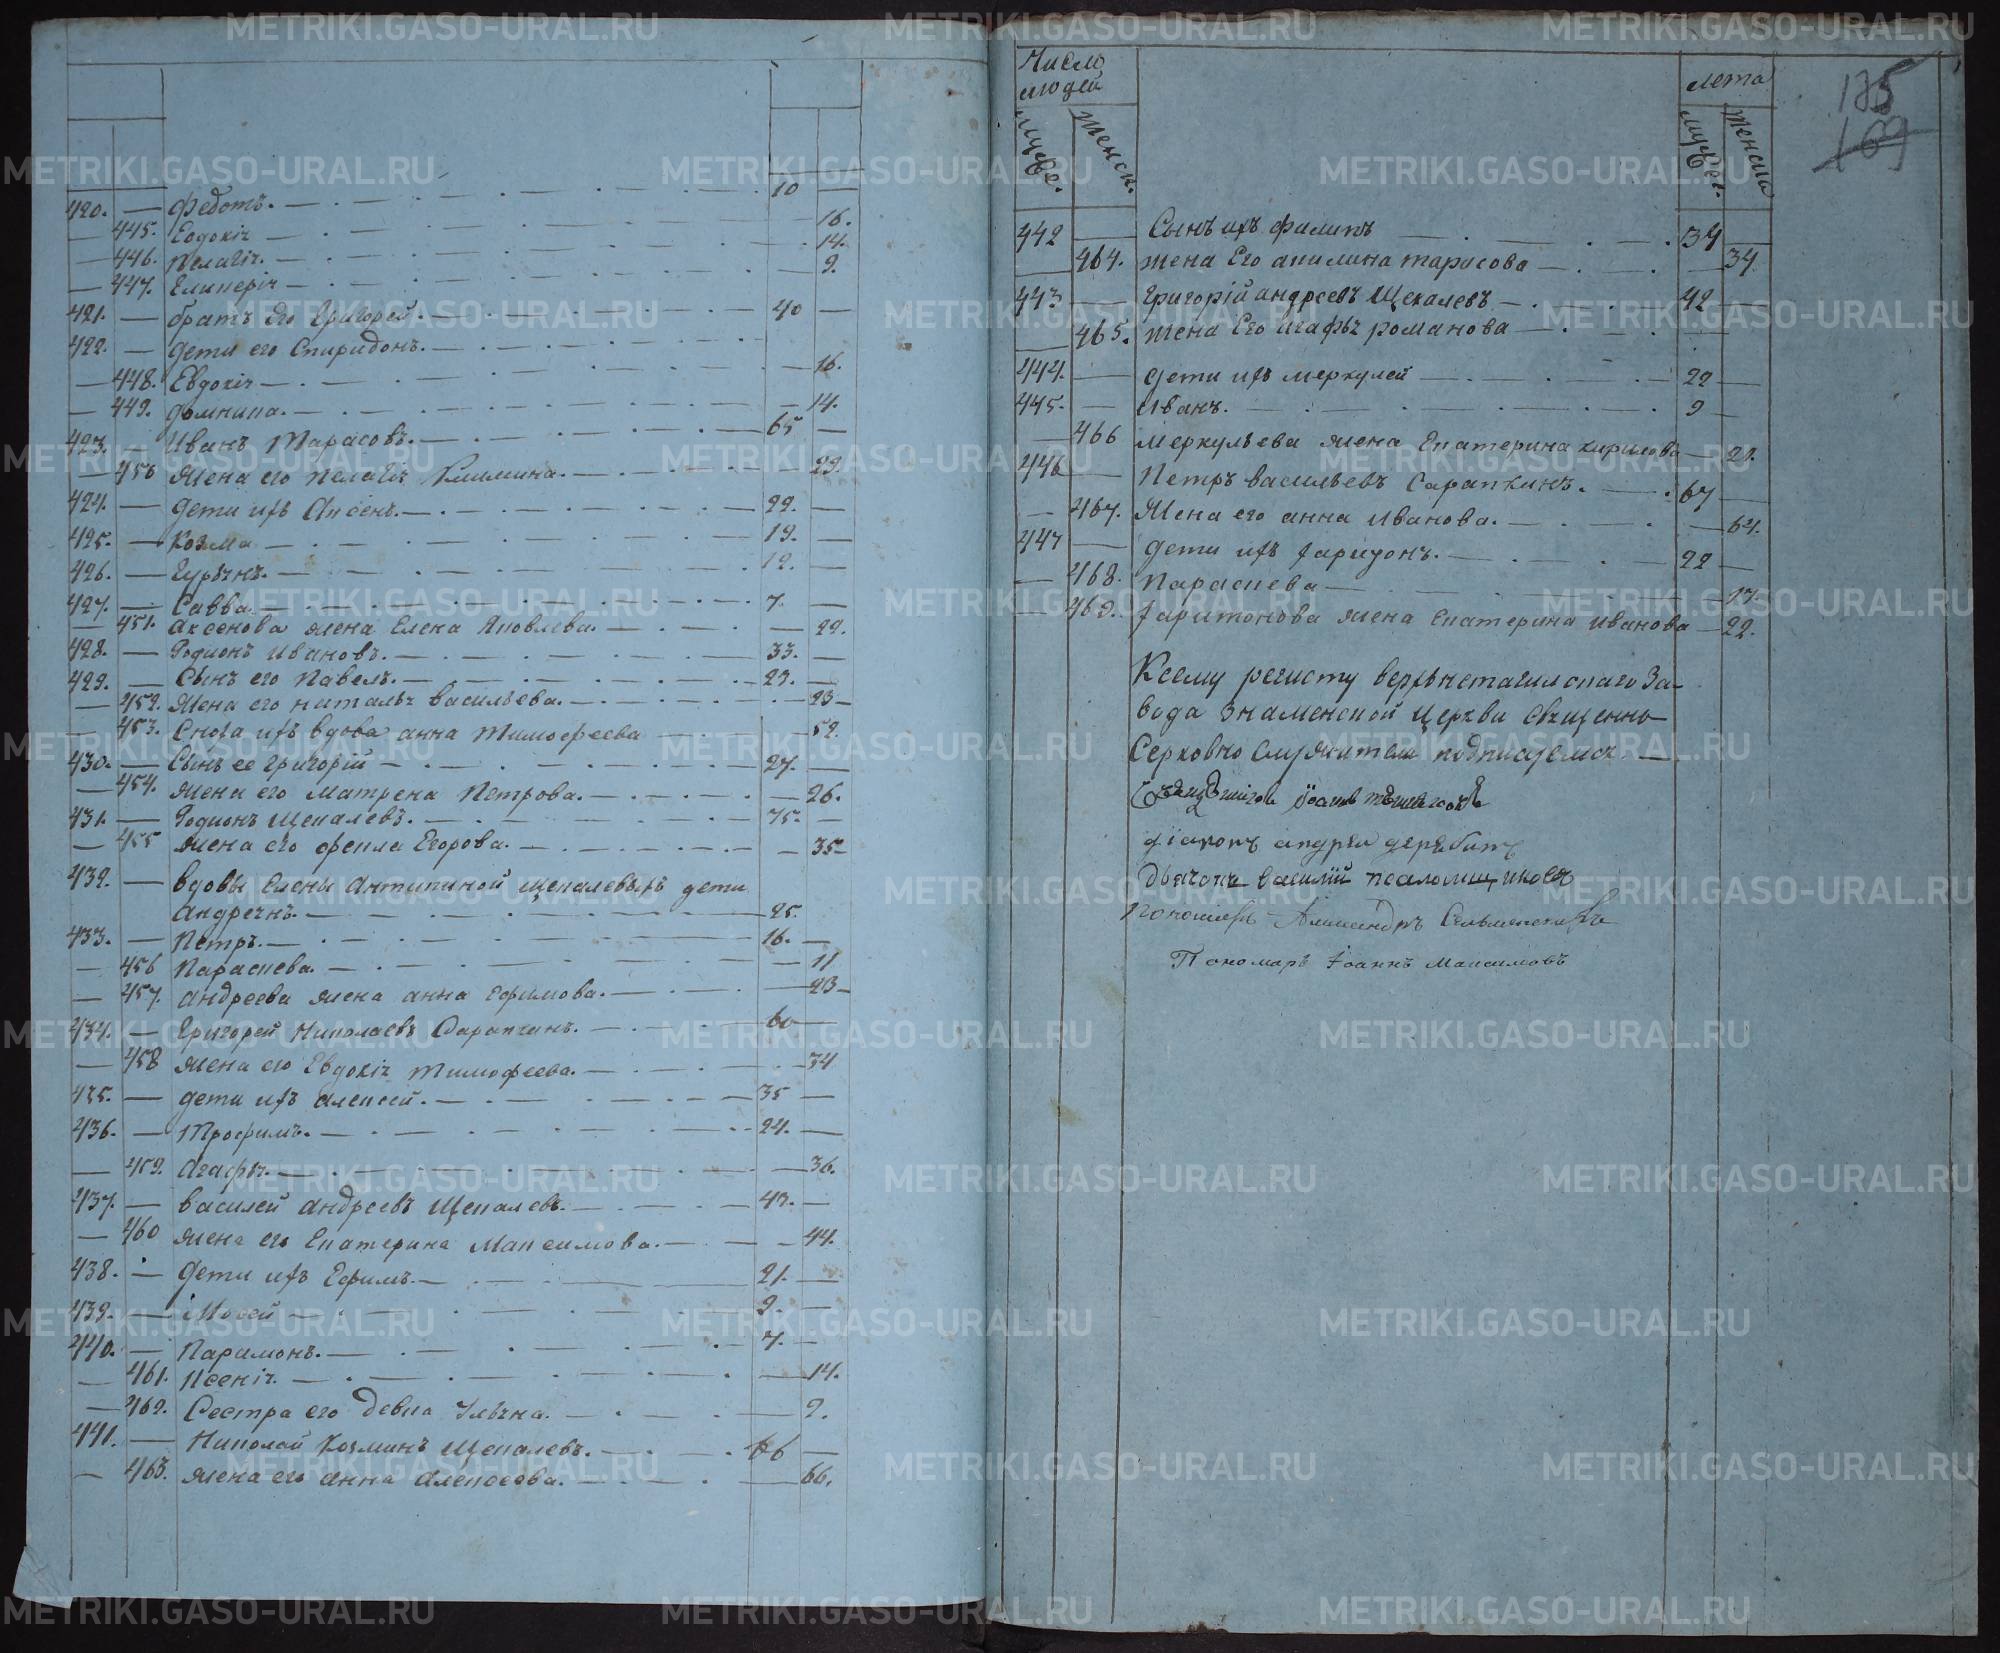 420. — Федотъ. — 10 —
— 445. Евдокіѧ — 16.
— 446. Пелагіѧ. — 14.
— 447. Гликеріѧ — 9.
421. — братъ Его Григорей. — 40 —
422. — Дети его Спиридонъ. —
— 448. Евдокіѧ — 16.
— 449. Домника. — 14.
423. — Иванъ Тарасовъ. — 65 —
— 450 Жена его Пелагіѧ — 29.
424. — Дети ихъ Аксенъ. — 22. —
425. — Козма — 19. —
426. — Гурѧнъ. — 12. —
427. — Савва. — 7. —
— 451. Аксенова жена Елена Яковлева. — 22.
428. — Родионъ Ивановъ. — 33. —
429. — Сынъ его Павелъ. — 23. —
— 452. Жена его Наталѧ Васильева. — 23 —
— 453. Сноха ихъ вдова Анна Тимофеева — 52.
430. — Сынъ ее Григорій — 27. —
— 454. Жена его Матрена Петрова. — 26.
431. — Родионъ Щекалевъ. — 75. —
— 455 Жена его Фекла Егорова. — 35 —
432. — Вдовы Елены Антипиной Щекалевыхъ дети
Андреѧнъ. — 25.
433. — Петръ. — 16. —
— 456 Параскева. — 11
— 457. Андреева жена Анна Ефимова. — 23 —
434. — Григорей Николаевъ Сарапкинъ. — 60 —
— 458 Жена его Евдокіѧ Тимофеева. — 34
435. — Дети ихъ Алексей. — 35 —
436. — Трофимъ. — 24. —
— 459. Агафѧ. — 36.
437. — Василей Андреевъ Щекалевъ. — 43. —
— 460 Жена его Екатерина Максимова. — 44.
438. — Дети ихъ Ефимъ. — 21. —
439. — Мосей — 9. —
440. — Парамонъ. — 7. —
— 461. Ксеніѧ. — 14.
— 462. Сестра его девка Улѧна. — 2.
441. — Николай Козминъ Щекалевъ. — 66 —
— 463. Жена его Анна Алексеева. — 66.
Число людей лета
мужес. женск. мужес. женска
125
169
442 — Сынъ ихъ Филипъ — 34 —
— 464. Жена Его Акилина Тарасова — 34.
443. — Григорій Андреевъ Щекалевъ — 42 —
— 465. Жена Его Агафѧ Романова —
444. — Дети ихъ Меркулей — 22 —
445. — Иванъ. — 9 —
— 466 Меркульева жена Екатерина Кирилова — 21.
446 — Петръ Васильевъ Сарапкинъ. — 67 —
— 467. Жена его Анна Иванова. — 64.
447 — Дети ихъ Харитонъ. — 22 —
— 468. Параскева — 17.
— 469. Харитонова жена Екатерина Иванова — 22.
Ксему регисту Верхнетагилскаго За-
вода Знаменской Церкви Свѧщенно
Серковно служители подписуемсѧ. —
Діаконъ Андрей Дерябинъ
Дьячокъ Василій Псаломщиковъ
Пономарь Александръ
Пономаръ Іоаннъ Максимовъ
METRIKI.GASO-URAL.RU